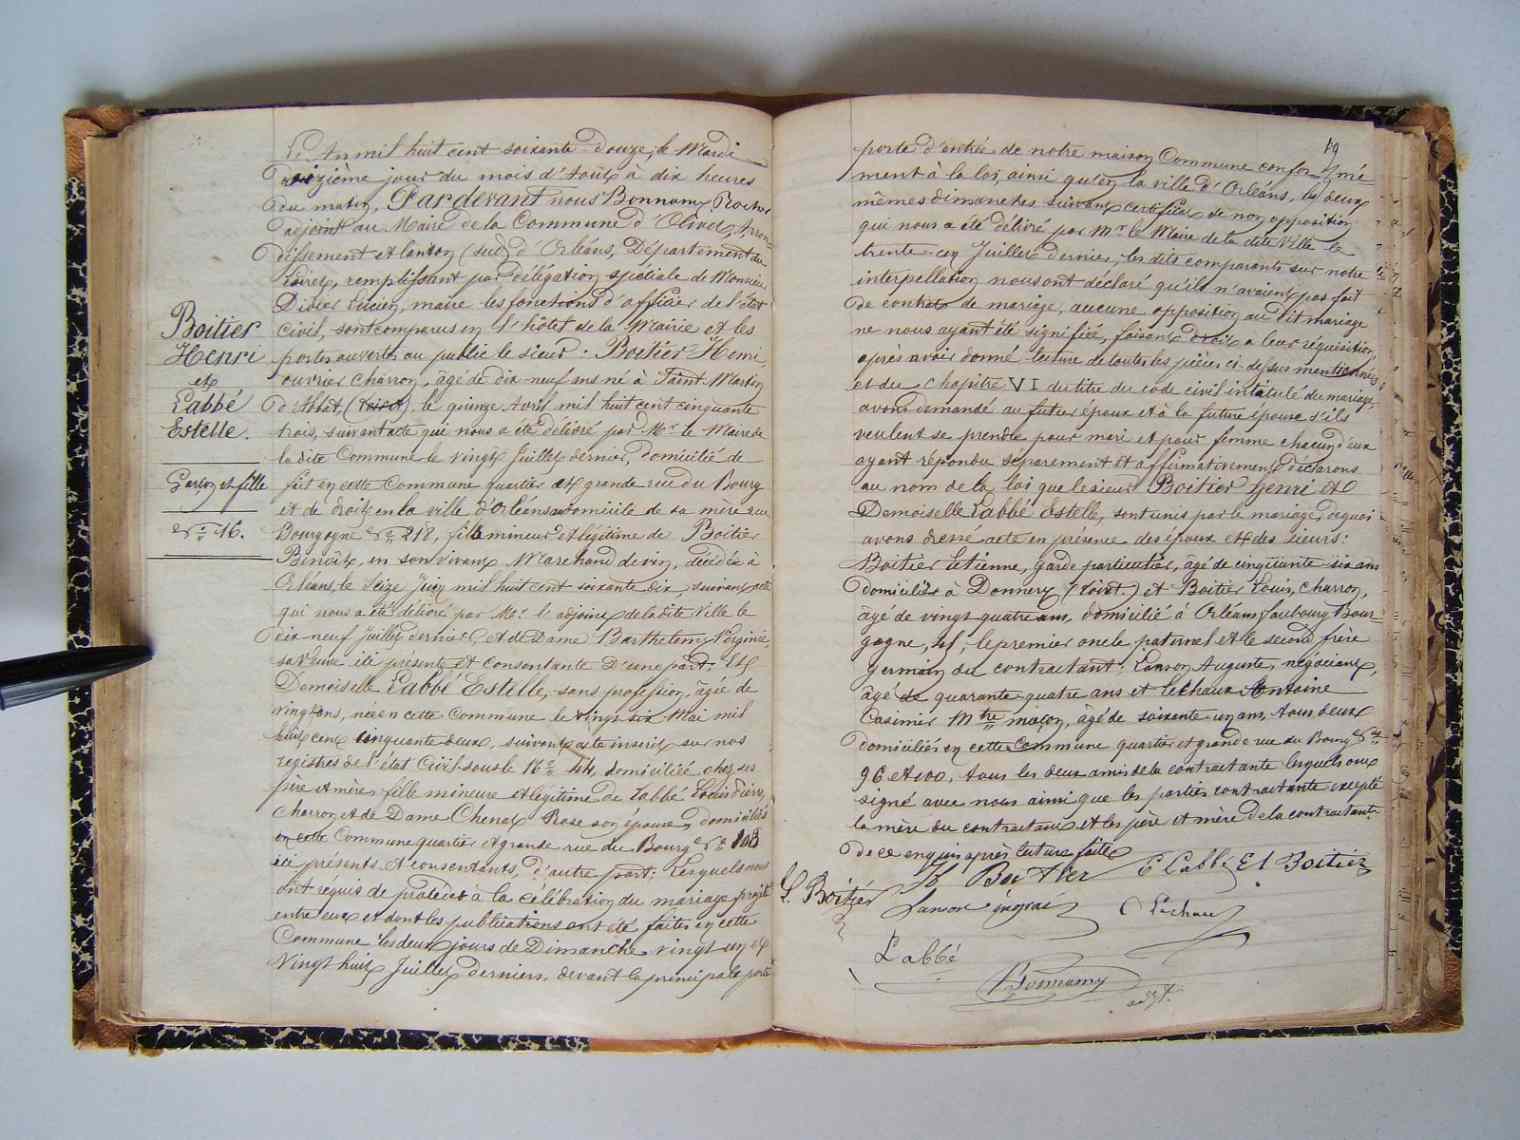 Boitier
Henri
et
Labbé
Estelle.
Garçon et fille
N° 16.
L'An mil huit cent soixante douze, le Mardi
treizième jour du mois d'Août à dix heures
du matin, Pardevant nous Bonnamy Rocher
adjoint au Maire de la Commune d'Olivet, Arron-
dissement et Canton (sud) d'Orléans, Département du
Loiret, remplissant par délégation spéciale de Monsieur
Didier Lucien, maire les fonctions d'officier de l'état
civil, sont comparus en l'hôtel de la Mairie et les
portes ouvertes au public le sieur : Boitier Henri,
ouvrier charron, âgé de dix-neuf ans né à Saint Martin
d'Abbat, (Loiret), le quinze Avril mil huit cent cinquante
trois, suivant acte qui nous a été délivré par Mr le Maire de
la dite Commune le vingt Juillet dernier, domicilié de
fait en cette Commune quartier et grande rue du Bourg
et de droit en la ville d'Orléans au domicile de sa mère rue
Bourgogne N° 218, fils mineur et légitime de Boitier
Benoît, en son vivant Marchand de vin, décédé à
Orléans, le Seize Juin mil huit cent soixante dix, suivant acte
qui nous a été délivré par Mr l'adjoint de la dite Ville le
dix-neuf Juillet dernier et de Dame Barthelemy Virginie,
sa veuve ici présente et consentante d'une part; Et
Demoiselle Labbé Estelle, sans profession, âgée de
vingt ans, née en cette Commune le vingt six Mai mil
huit cent cinquante deux, suivant acte inscrit sur nos
registres de l'état Civil sous le N° 44, domiciliée chez ses
père et mère, fille mineure et légitime de Labbé Louis
Charron, et de Dame Chenet Rose son épouse, domiciliés
en cette Commune quartier et grande rue du Bourg N° 108
ici présents et consentants, d'autre part; Lesquels nous
ont requis de procéder à la célébration du mariage projeté
entre eux et dont les publications ont été faites en cette
Commune les deux jours de Dimanche vingt un et
vingt huit Juillet derniers, devant la principale porte
porte d'entrée de notre maison Commune conformé-
ment à la loi, ainsi qu'en la ville d'Orléans, les deux
mêmes dimanches suivant certificat de non opposition
qui nous a été délivré par Mr le Maire de la dite Ville le
trente un Juillet dernier; les dits comparants sur notre
interpellation nous ont déclaré qu'ils n'avaient pas fait
de contrat de mariage, aucune opposition au dit mariage
ne nous ayant été signifiée, faisant droit à leur réquisition,
après avoir donné lecture de toutes les pièces ci-dessus mentionnées
et du chapitre VI du titre du code civil intitulé du mariage,
avons demandé au futur époux et à la future épouse s'ils
veulent se prendre pour mari et pour femme chacun d'eux
ayant répondu séparément et affirmativement déclarons
au nom de la loi que le sieur Boitier Henri et
Demoiselle Labbé Estelle, sont unis par le mariage, de quoi
avons dressé acte en présence des époux et des Sieurs :
Boitier Etienne, garde particulier, âgé de cinquante six ans
domicilié à Donnery (Loiret) et Boitier Louis, charron,
âgé de vingt quatre ans, domicilié à Orléans, faubourg Bour-
gogne, 41, le premier oncle paternel et le second frère
germain du contractant; Lanson Auguste, négociant,
âgé de quarante quatre ans et Lechaux Antoine
Casimir Mtre maçon, âgé de soixante un ans, tous deux
domiciliés en cette Commune quartier et grande rue du Bourg Nos
96 et 100, tous les deux amis de la contractante lesquels ont
signé avec nous ainsi que les parties contractantes excepté
la mère du contractant et les père et mère de la contractante
de ce enquis après lecture faite
H Boitier E Labbé E Boitier
L. Boitier Lanson C Lechaux
Labbé
Bonnamy
adjt.